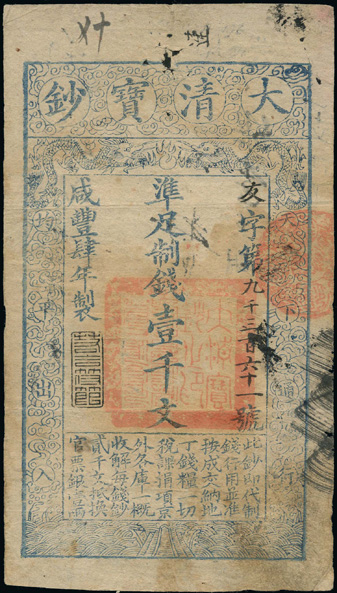 大清寶鈔
天下通行
均平出入
友字第九千三百六十一號
準足制錢壹千文
咸豐肆年製
此鈔即代制
錢行用並准
按成交納地
丁錢糧一切
稅課捐項京
外各庫一概
收解每錢鈔
貳千文抵換
官票銀壹兩